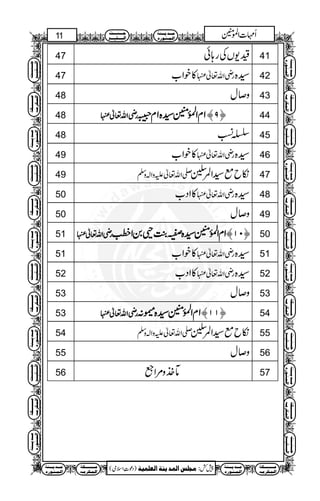 اُمہات المؤمنین 11
41 قیدیوں کی رہائی 47
42 سیدہ رضی اللہ تعالیٰ عنہا کا خواب 47
43 وصال 48
44 ﴿۹﴾ ام المؤمنین سیدہ ام حبیبہ رضی اللہ تعالیٰ عنہا 48
45 سلسلہ نسب 48
46 سیدہ رضی اللہ تعالیٰ عنہا کا خواب 49
47 نکاح مع سید المرسلین صلی اللہ تعالیٰ علیہ والہ وسلم 49
48 سیدہ رضی اللہ تعالیٰ عنہا کا ادب 50
49 وصال 50
50 ﴿۱۰﴾ ام المؤمنین سیدہ صفیہ بنت حیی بن اخطب رضی اللہ تعالیٰ عنہا 51
51 سیدہ رضی اللہ تعالیٰ عنہا کا خواب 51
52 سیدہ رضی اللہ تعالیٰ عنہا کا ادب 52
53 وصال 53
53 ﴿۱۱﴾ ام المؤمنین سیدہ میمونہ رضی اللہ تعالیٰ عنہا 53
55 نکاح مع سید المرسلین صلی اللہ تعالیٰ علیہ والہ وسلم 54
56 وصال 55
57 مآخذ و مراجع 56
پیش کش: مجلس المدینة العلمیة (دعوت اسلامی)